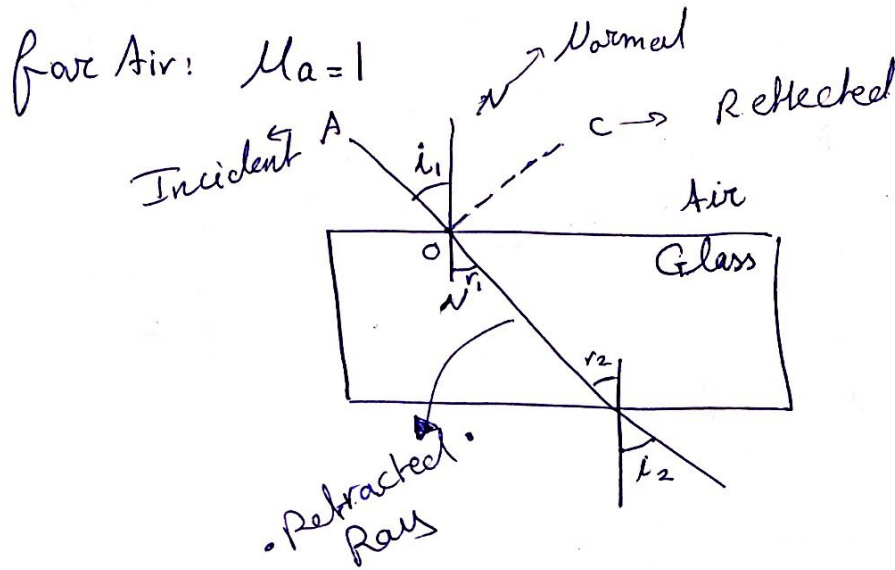 for Air: μa = 1
N → Normal
Incident ← A
i1
C → Reflected
Air
O
Glass
N r1
r2
i2
. Refracted .
Rays